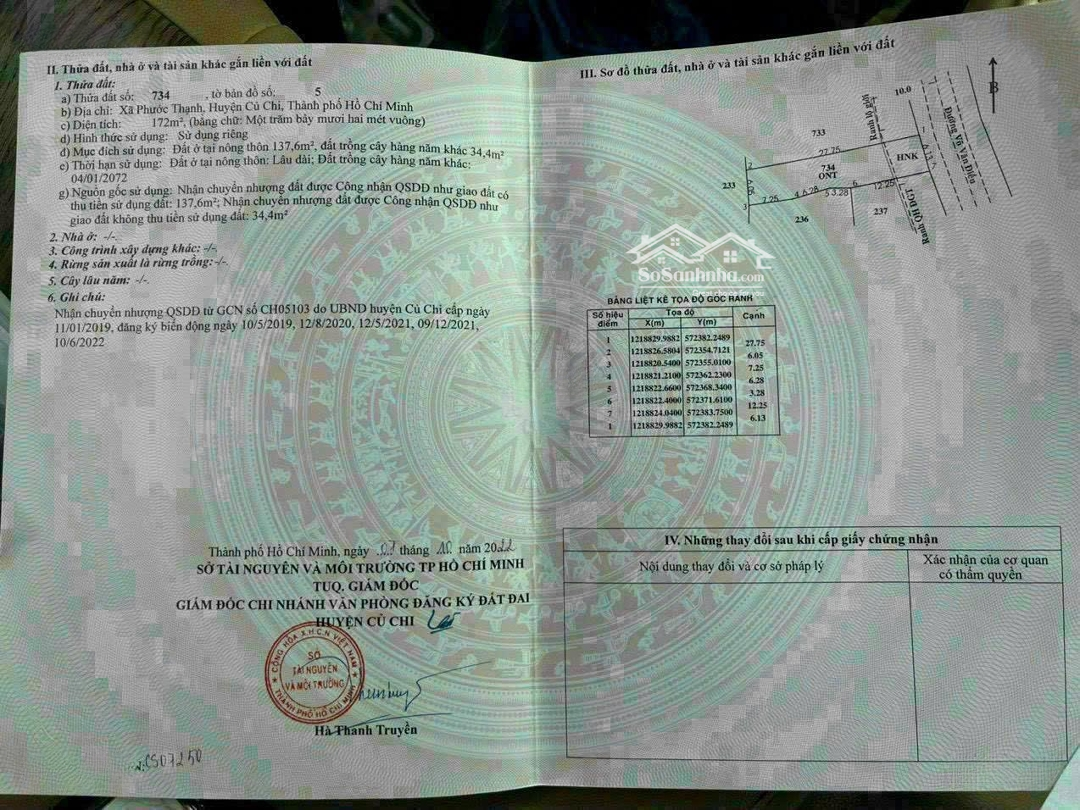 II. Thửa đất, nhà ở và tài sản khác gắn liền với đất
1. Thửa đất:
a) Thửa đất số: 734 , tờ bản đồ số: 5
b) Địa chỉ: Xã Phước Thạnh, Huyện Củ Chi, Thành phố Hồ Chí Minh
c) Diện tích: 172m², (bằng chữ: Một trăm bảy mươi hai mét vuông)
d) Hình thức sử dụng: Sử dụng riêng
đ) Mục đích sử dụng: Đất ở tại nông thôn 137,6m², đất trồng cây hàng năm khác 34,4m²
e) Thời hạn sử dụng: Đất ở tại nông thôn: Lâu dài; Đất trồng cây hàng năm khác:
04/01/2072
g) Nguồn gốc sử dụng: Nhận chuyển nhượng đất được Công nhận QSDĐ như giao đất có
thu tiền sử dụng đất: 137,6m²; Nhận chuyển nhượng đất được Công nhận QSDĐ như
giao đất không thu tiền sử dụng đất: 34,4m²
2. Nhà ở: -/-.
3. Công trình xây dựng khác: -/-.
4. Rừng sản xuất là rừng trồng: -/-.
5. Cây lâu năm: -/-.
6. Ghi chú:
Nhận chuyển nhượng QSDĐ từ GCN số CH05103 do UBND huyện Củ Chi cấp ngày
11/01/2019, đăng ký biến động ngày 10/5/2019, 12/8/2020, 12/5/2021, 09/12/2021,
10/6/2022
Thành phố Hồ Chí Minh, ngày tháng 10 năm 2022
SỞ TÀI NGUYÊN VÀ MÔI TRƯỜNG TP HỒ CHÍ MINH
TUQ. GIÁM ĐỐC
GIÁM ĐỐC CHI NHÁNH VĂN PHÒNG ĐĂNG KÝ ĐẤT ĐAI
HUYỆN CỦ CHI
CỘNG HÒA X.H.C.N VIỆT NAM
SỞ
TÀI NGUYÊN
VÀ MÔI TRƯỜNG
THÀNH PHỐ HỒ CHÍ MINH
Hà Thanh Truyền
CS07250
III. Sơ đồ thửa đất, nhà ở và tài sản khác gắn liền với đất
B
10.0
Ranh lộ giới
Đường Võ Văn Điều
733
1
27.75
2
734
ONT
HNK
6.13
7
233
6.05
3
7.25
4
6.28
5
3.28
6
12.25
236
237
Ranh QH ĐGT
SoSanhnha.com
BẢNG LIỆT KÊ TỌA ĐỘ GÓC RANH
Số hiệu điểm Tọa độ Cạnh
X(m) Y(m)
1 1218829.9882 572382.2489
27.75
2 1218826.5804 572354.7121
6.05
3 1218820.5400 572355.0100
7.25
4 1218821.2100 572362.2300
6.28
5 1218822.6600 572368.3400
3.28
6 1218822.4000 572371.6100
12.25
7 1218824.0400 572383.7500
6.13
1 1218829.9882 572382.2489
IV. Những thay đổi sau khi cấp giấy chứng nhận
Nội dung thay đổi và cơ sở pháp lý
Xác nhận của cơ quan
có thẩm quyền